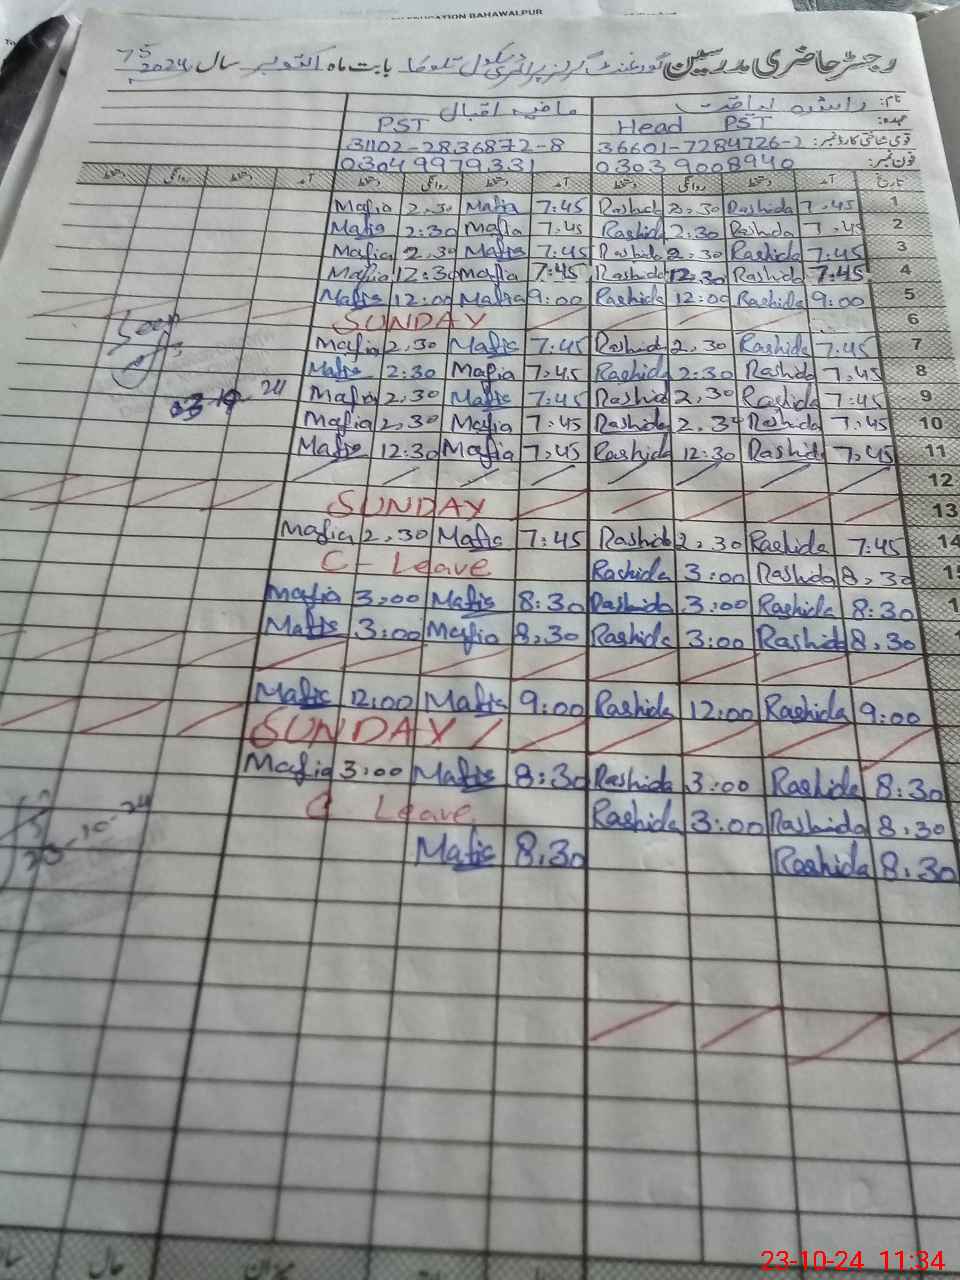 EDUCATION BAHAWALPUR
رجسٹر حاضری مدرسین گورنمنٹ گرلز پرائمری سکول بابت ماہ اکتوبر سال 2024
نام: راشدہ لیاقت ماضیہ اقبال
عہدہ: Head PST PST
قومی شناختی کارڈ نمبر: 36601-7284726-2 31102-2836872-8
فون نمبر: 0303 9008940 0304 9979331
تاریخ آمد دستخط روانگی دستخط آمد دستخط روانگی دستخط آمد دستخط روانگی دستخط
Mafia 2.30 Mafia 7:45 Rashida 2.30 Rashida 7.45 1
Mafia 2:30 Mafia 7.45 Rashida 2:30 Rashida 7.45 2
Mafia 2.30 Mafia 7:45 Rashida 2.30 Rashida 7:45 3
Mafia 12:30 Mafia 7:45 Rashida 12.30 Rashida 7:45 4
Mafia 12:00 Mafia 9:00 Rashida 12:00 Rashida 9:00 5
SUNDAY 6
Mafia 2.30 Mafia 7:45 Rashida 2.30 Rashida 7:45 7
Mafia 2:30 Mafia 7.45 Rashida 2:30 Rashida 7.45 8
Mafia 2.30 Mafia 7:45 Rashida 2.30 Rashida 7:45 9
Mafia 2.30 Mafia 7.45 Rashida 2.30 Rashida 7.45 10
Mafia 12:30 Mafia 7.45 Rashida 12:30 Rashida 7.45 11
12
SUNDAY 13
Mafia 2.30 Mafia 7:45 Rashida 2.30 Rashida 7:45 14
C- Leave Rashida 3:00 Rashida 8.30 15
Mafia 3:00 Mafia 8:30 Rashida 3:00 Rashida 8:30
Mafia 3:00 Mafia 8.30 Rashida 3:00 Rashida 8.30
Mafia 12:00 Mafia 9:00 Rashida 12:00 Rashida 9:00
SUNDAY
Mafia 3:00 Mafia 8:30 Rashida 3:00 Rashida 8:30
C Leave Rashida 3:00 Rashida 8.30
Mafia 8.30 Rashida 8.30
23-10-24
میزان حال
23-10-24 11:34